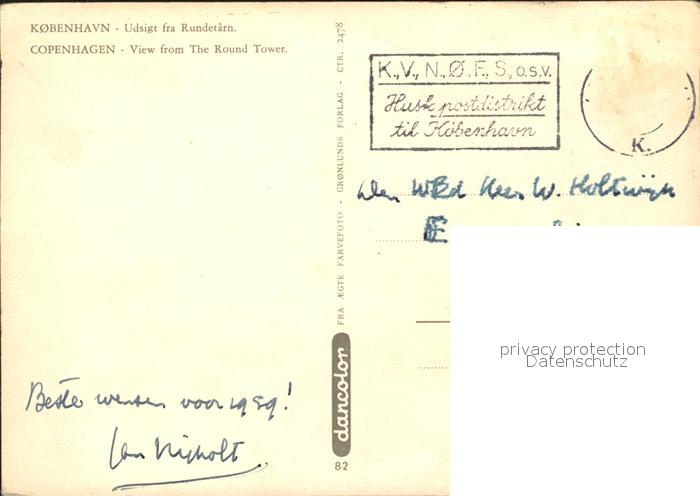 KØBENHAVN - Udsigt fra Rundetårn.
COPENHAGEN - View from The Round Tower.
FRA ÆGTE FARVEFOTO - GRØNLUNDS FORLAG - CTR. 2478
dancolor
82
K., V., N., Ø., F., S., o.s.v.
Husk postdistrikt
til København
K.
Den WEd Heer W. Holtwijk
E
privacy protection
Datenschutz
Beste wensen voor 1959!
Jan Nijholt